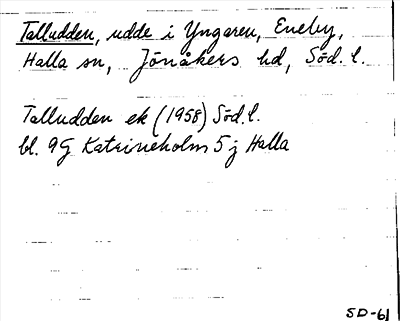 Talludden, udde i Yngaren, Eneby,
Halla sn, Jönåkers hd, Söd. l.
Talludden ek (1958) Söd. l.
bl. 9G Katrineholm 5 j Halla
SD-61